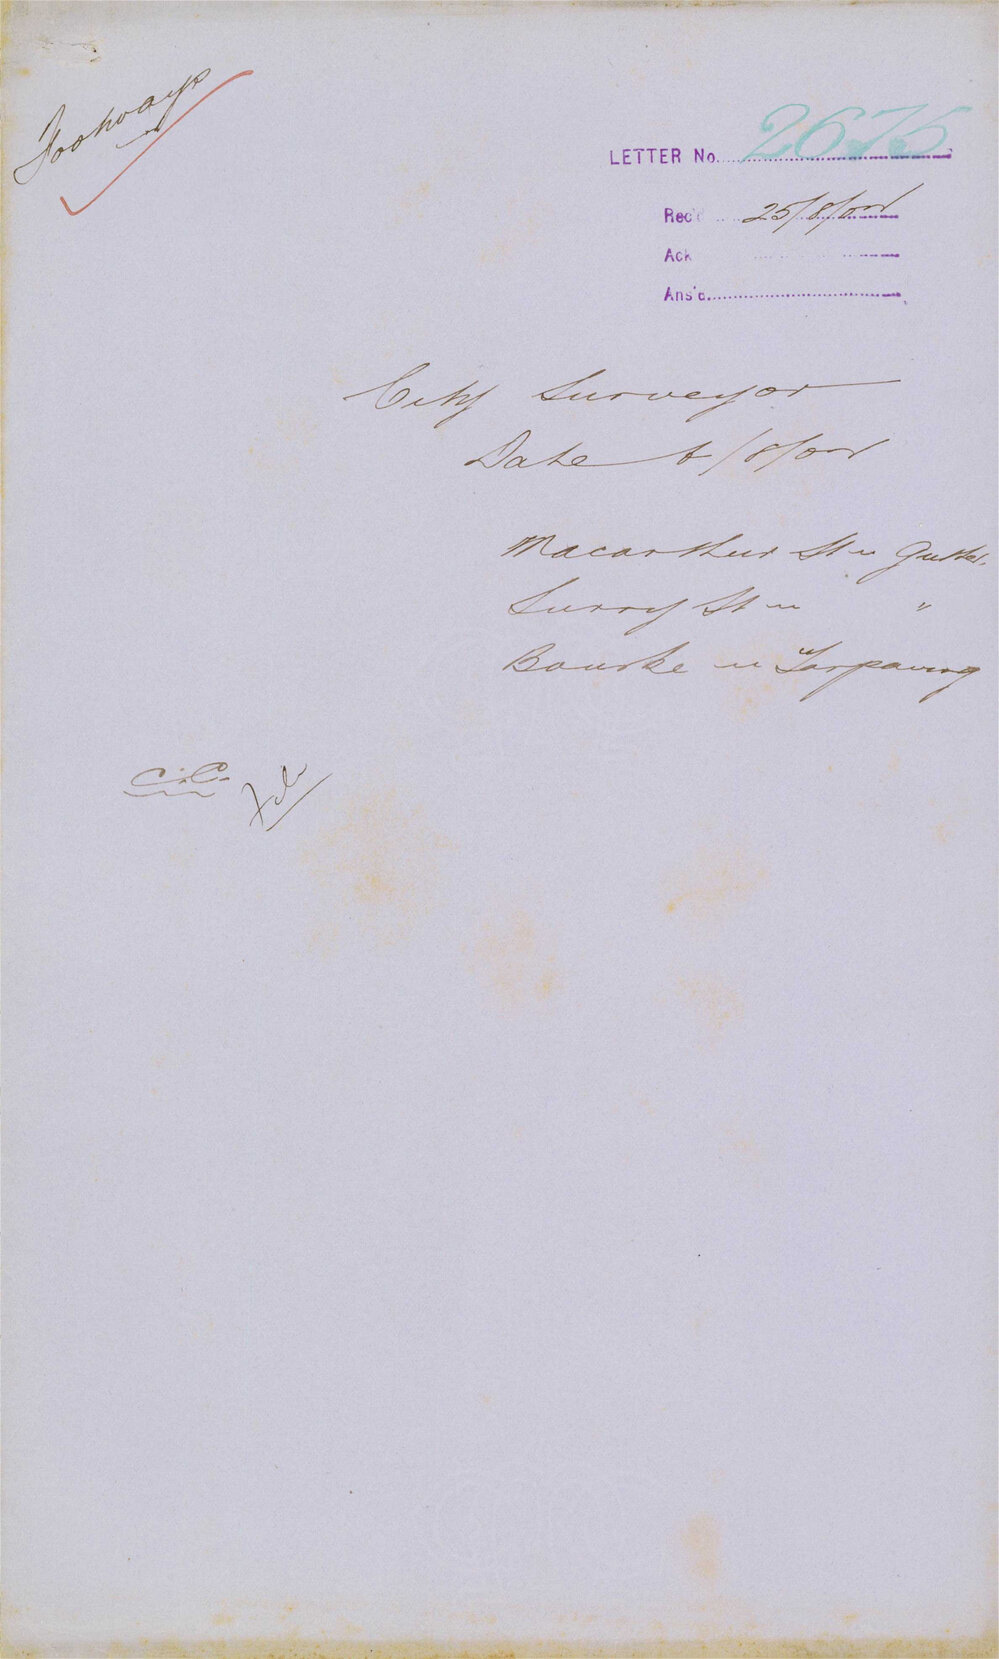 Footways
LETTER No. 2675
Rec'd 25/8/
Ack
Ans'd.
City Surveyor
Date 6/8/
Macarthur St Gutter.
Surry St "
Bourke " Tarpaving
C.C. File